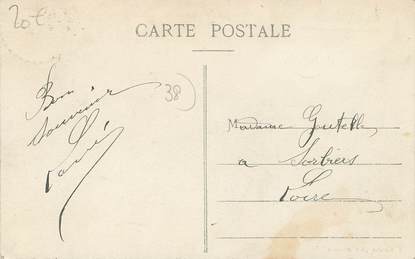 20€
CARTE POSTALE
38
Bon
souvenir
Madame
a Sorbiers
Loire